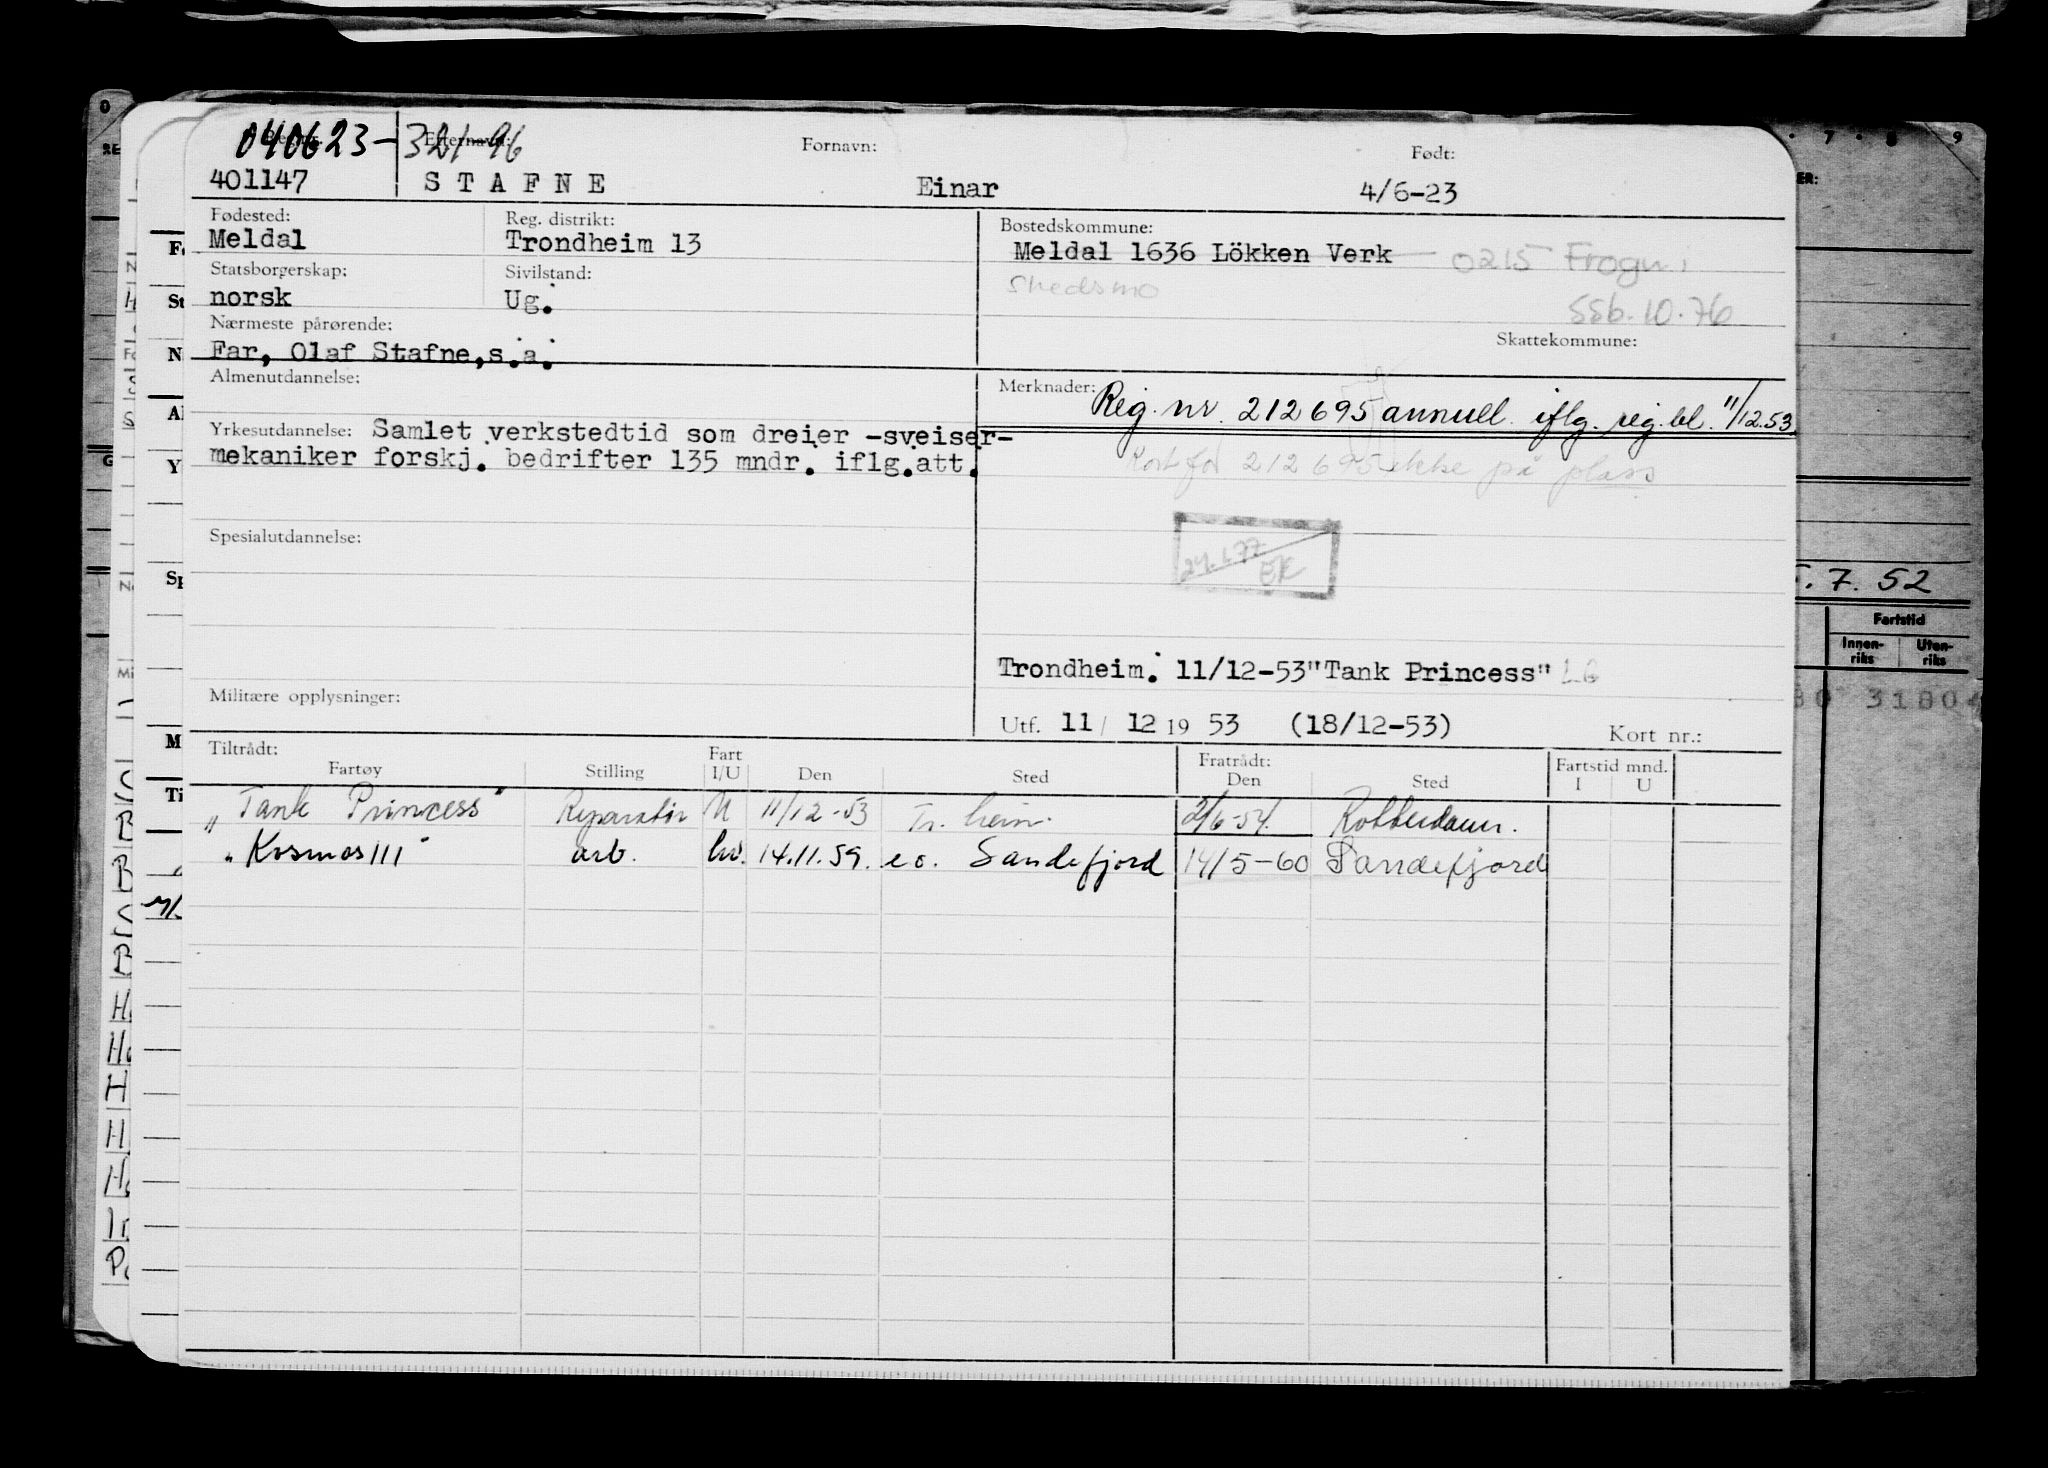 040623-32196
Efternavn:
Fornavn:
Født:
401147 STAFNE Einar 4/6-23
Fødested: Reg. distrikt: Bostedskommune:
Meldal Trondheim 13 Meldal 1636 Lökken Verk 0215 Frogn
Statsborgerskap: Sivilstand: Skedsmo
norsk Ug. SSB.10.76
Nærmeste pårørende: Skattekommune:
Far, Olaf Stafne, s.a.
Almenutdannelse: Merknader: Reg. nr. 212695 annull. iflg. reg.bl. 11/12.53.
Yrkesutdannelse: Samlet verkstedtid som dreier -sveiser-
mekaniker forskj. bedrifter 135 mndr. iflg.att.
Kort for 212695 ikke på plass
Spesialutdannelse:
24.1.77
EK
Trondheim. 11/12-53 "Tank Princess"
Militære opplysninger:
Utf. 11/ 12 19 53 (18/12-53) Kort nr.:
Tiltrådt: Fratrådt: Fartstid mnd.
Fartøy Stilling Fart I/U Den Sted Den Sted I U
"Tank Princess" Reparatør U 11/12-53 Tr. heim. 2/6-54. Rotterdam.
"Kosmos III" arb. hv. 14.11.59. e.o. Sandefjord 14/5-60 Sandefjord
7 8 9
. 7. 52
Fartstid
Innen-
riks
Uten-
riks